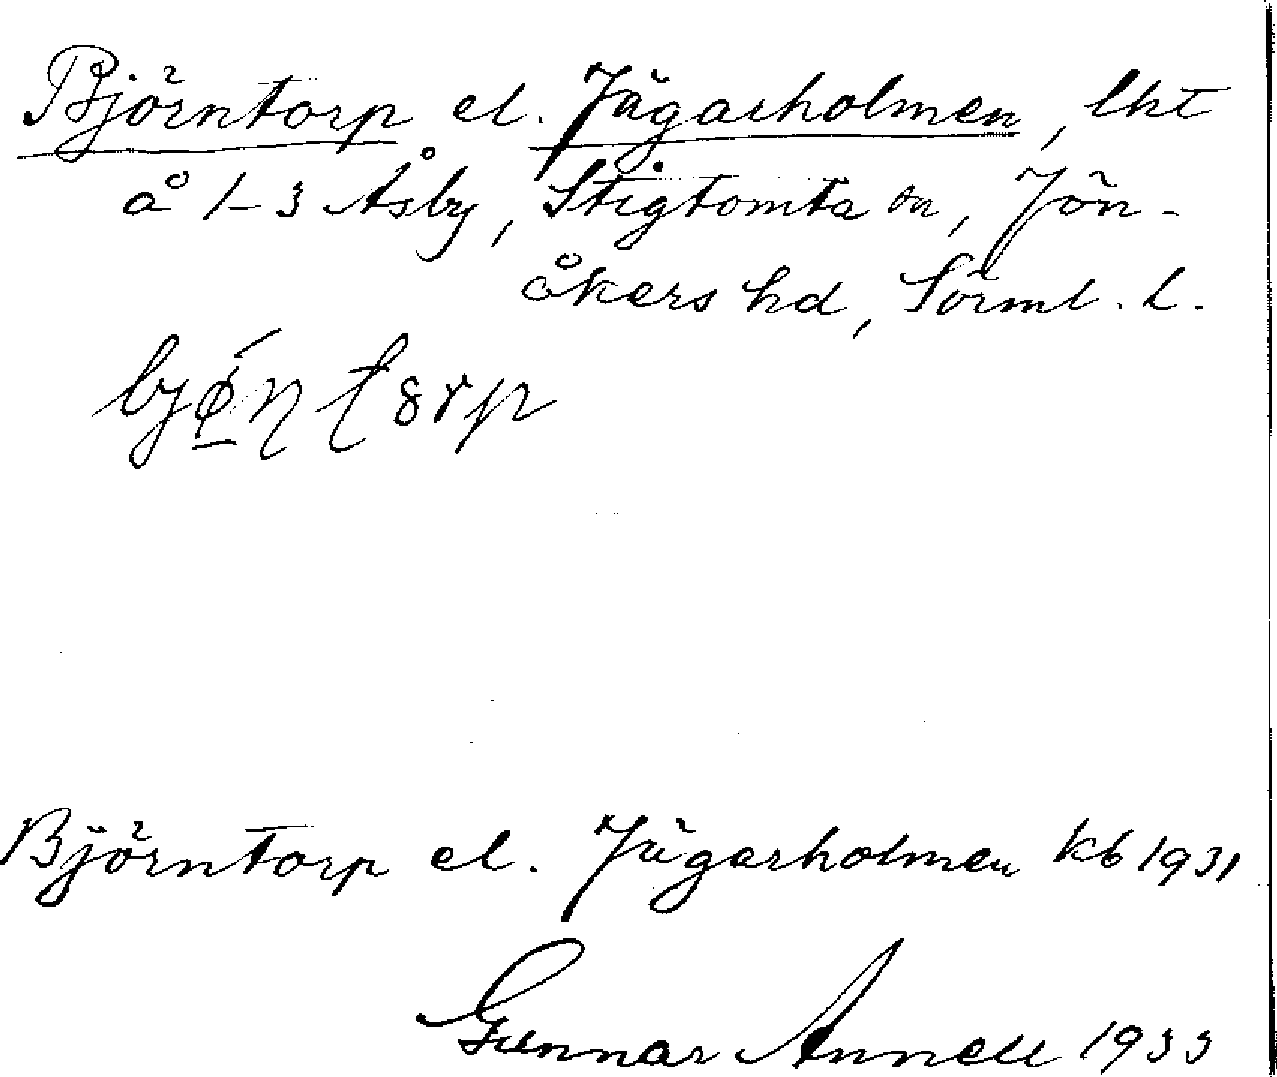 Björntorp el. Jägarholmen, lht
å 1-3 Åsby, Stigtomta sn, Jön-
åkers hd, Sörml. l.
Björntorp el. Jägarholmen kb 1931
Gunnar Annell 1933